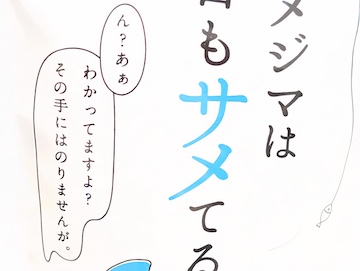 メジマは
日もサメてる
ん？あぁ
わかってますよ？
その手にはのりませんが。